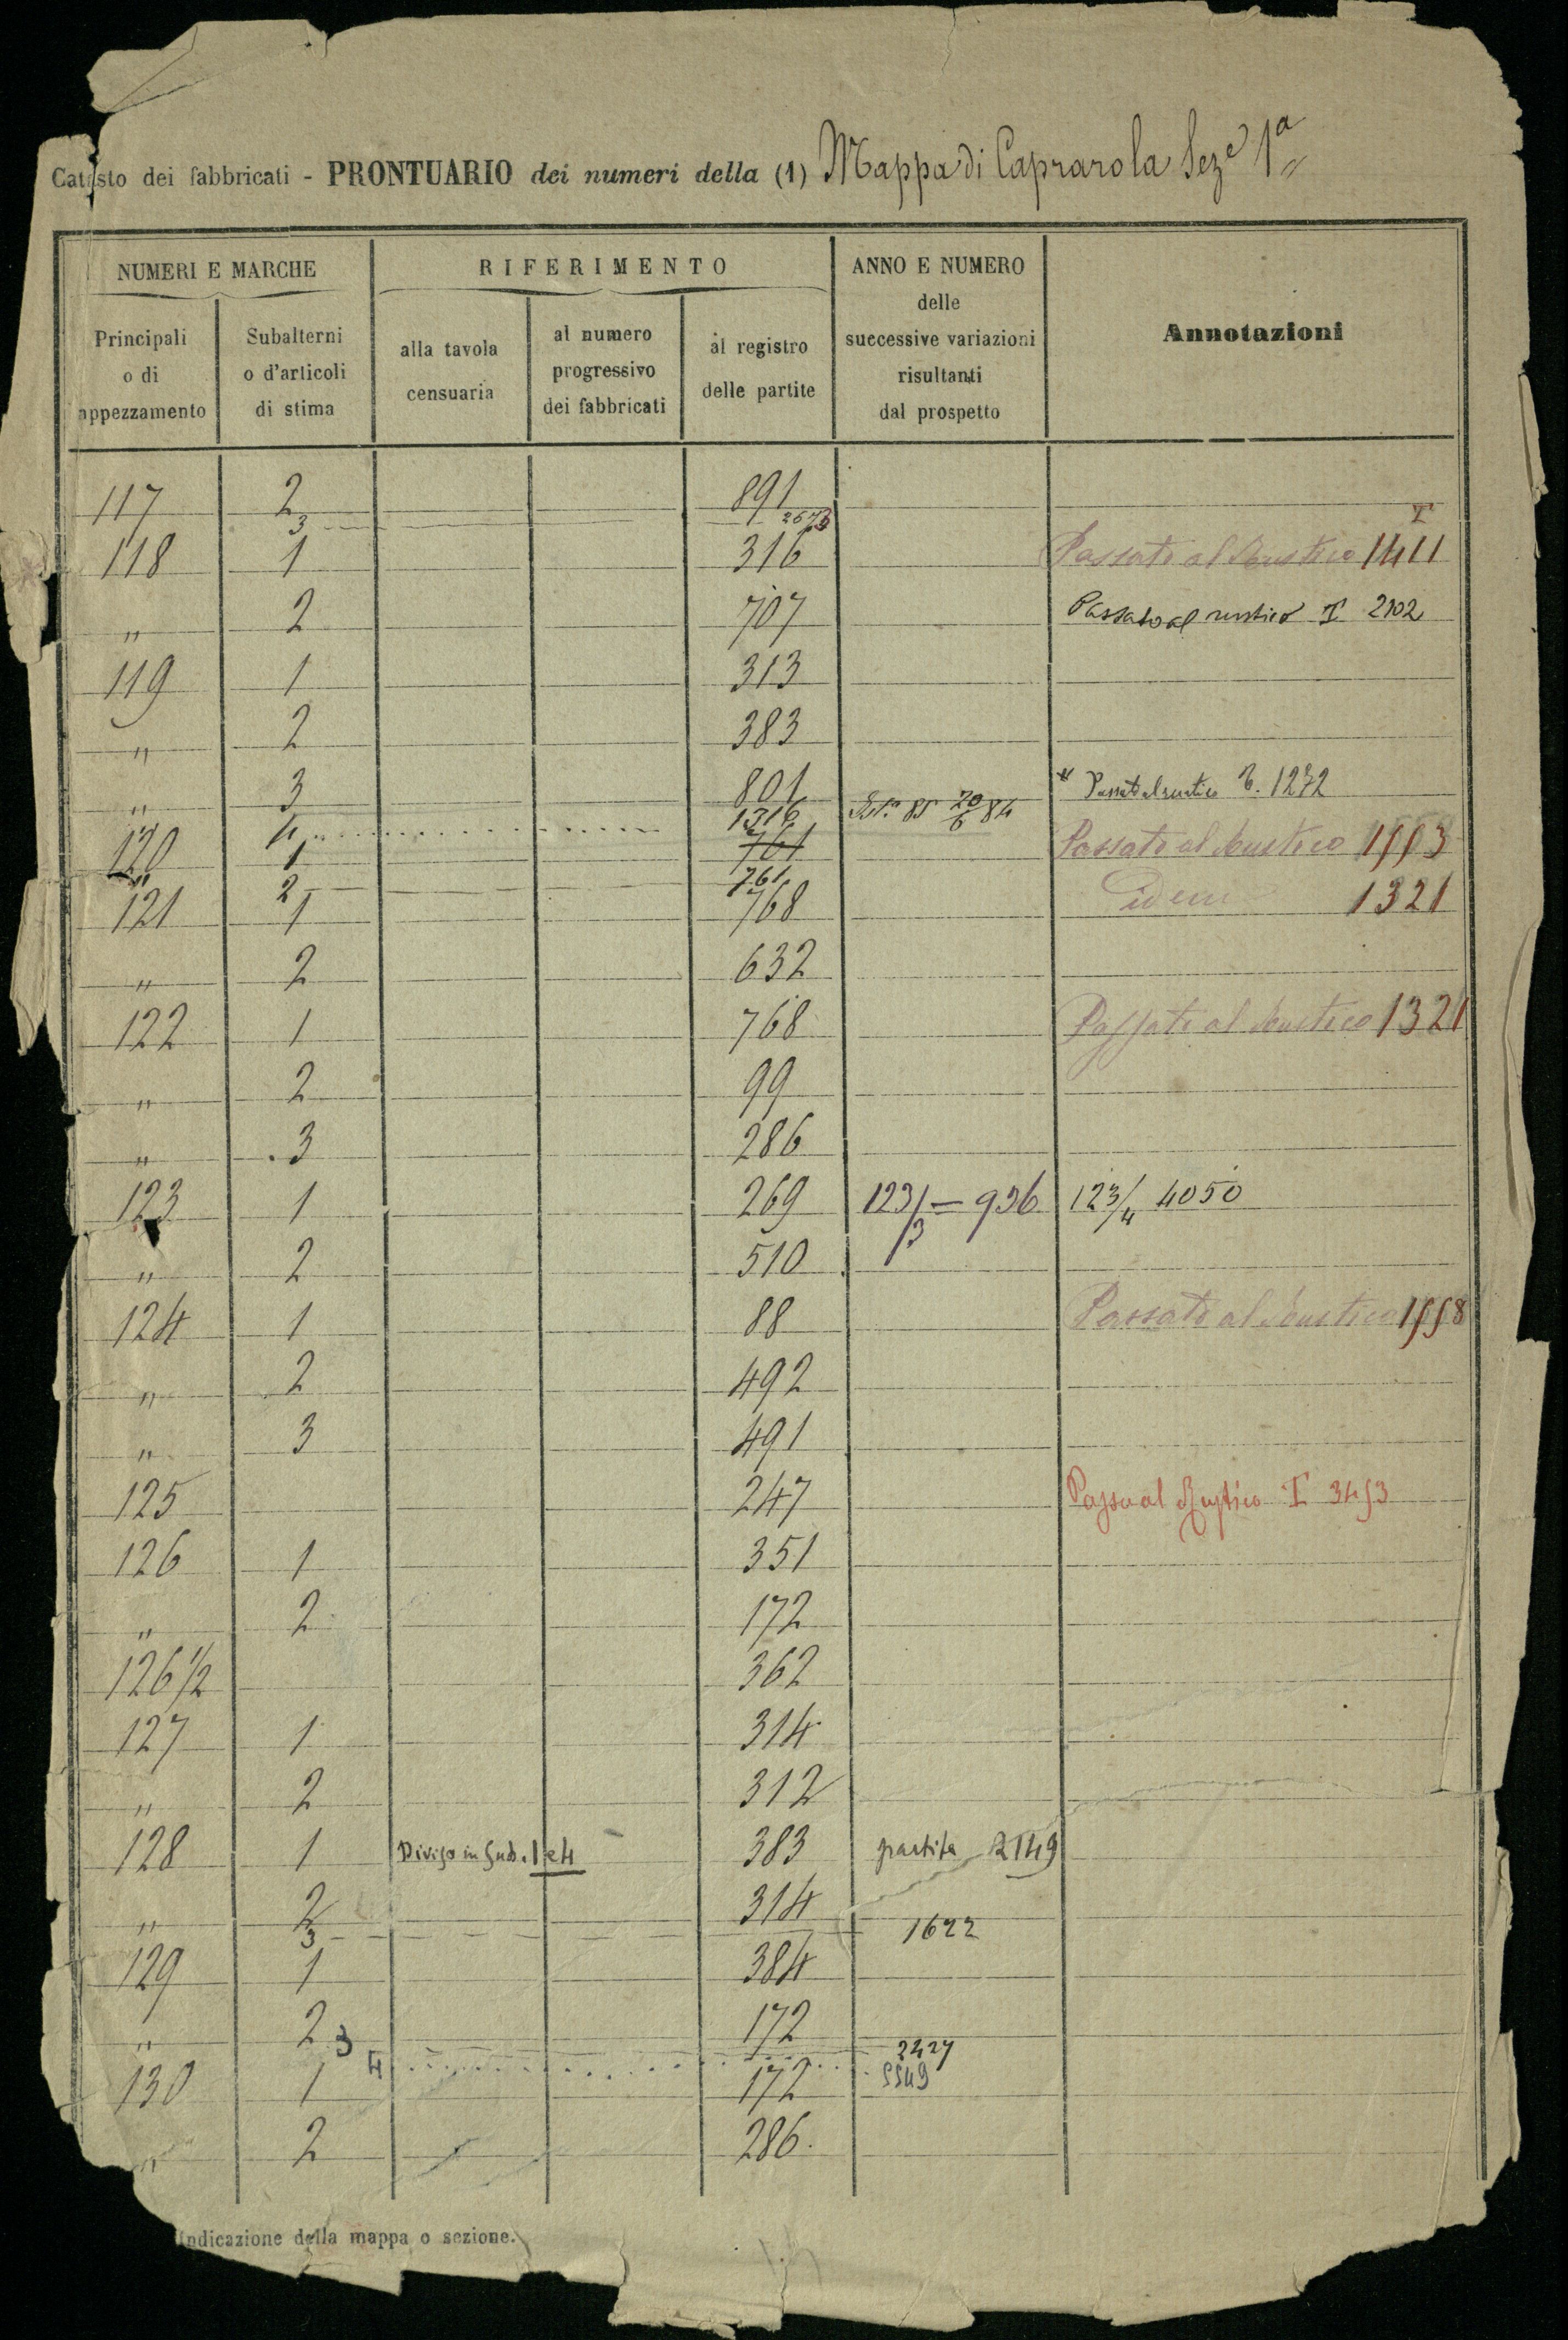 Catasto dei fabbricati - PRONTUARIO dei numeri della (1) Mappa di Caprarola Sez.e 1a
NUMERI E MARCHE
RIFERIMENTO
ANNO E NUMERO
delle
successive variazioni
risultanti
dal prospetto
Annotazioni
Principali
o di
appezzamento
Subalterni
o d'articoli
di stima
alla tavola
censuaria
al numero
progressivo
dei fabbricati
al registro
delle partite
117 2 891
3 2673
118 1 316 Passato al Rustico 1411 T
" 2 707 Passato al rustico T 2102
119 1 313
" 2 383
" 3 801 " Passato al rustico T. 1272
" 4 1316 85 20/6 84
120 1 761 Passato al Rustico 1553
" 2 761
121 1 768 idem 1321
" 2 632
122 1 768 Passato al Rustico 1321
" 2 99
" 3 286
123 1 269 123/3 = 936 123/4 4050
" 2 510
124 1 88 Passato al Rustico 1558
" 2 492
" 3 491
125 247 Passa al Rustico T 3453
126 1 351
" 2 172
126 1/2 362
127 1 314
" 2 312
128 1 Diviso in sub. 1 e 4 383 partita 2149
" 2 314
3 1622
129 1 384
" 2 172
3 2427
4 5549
130 1 172
" 2 286
Indicazione della mappa o sezione.